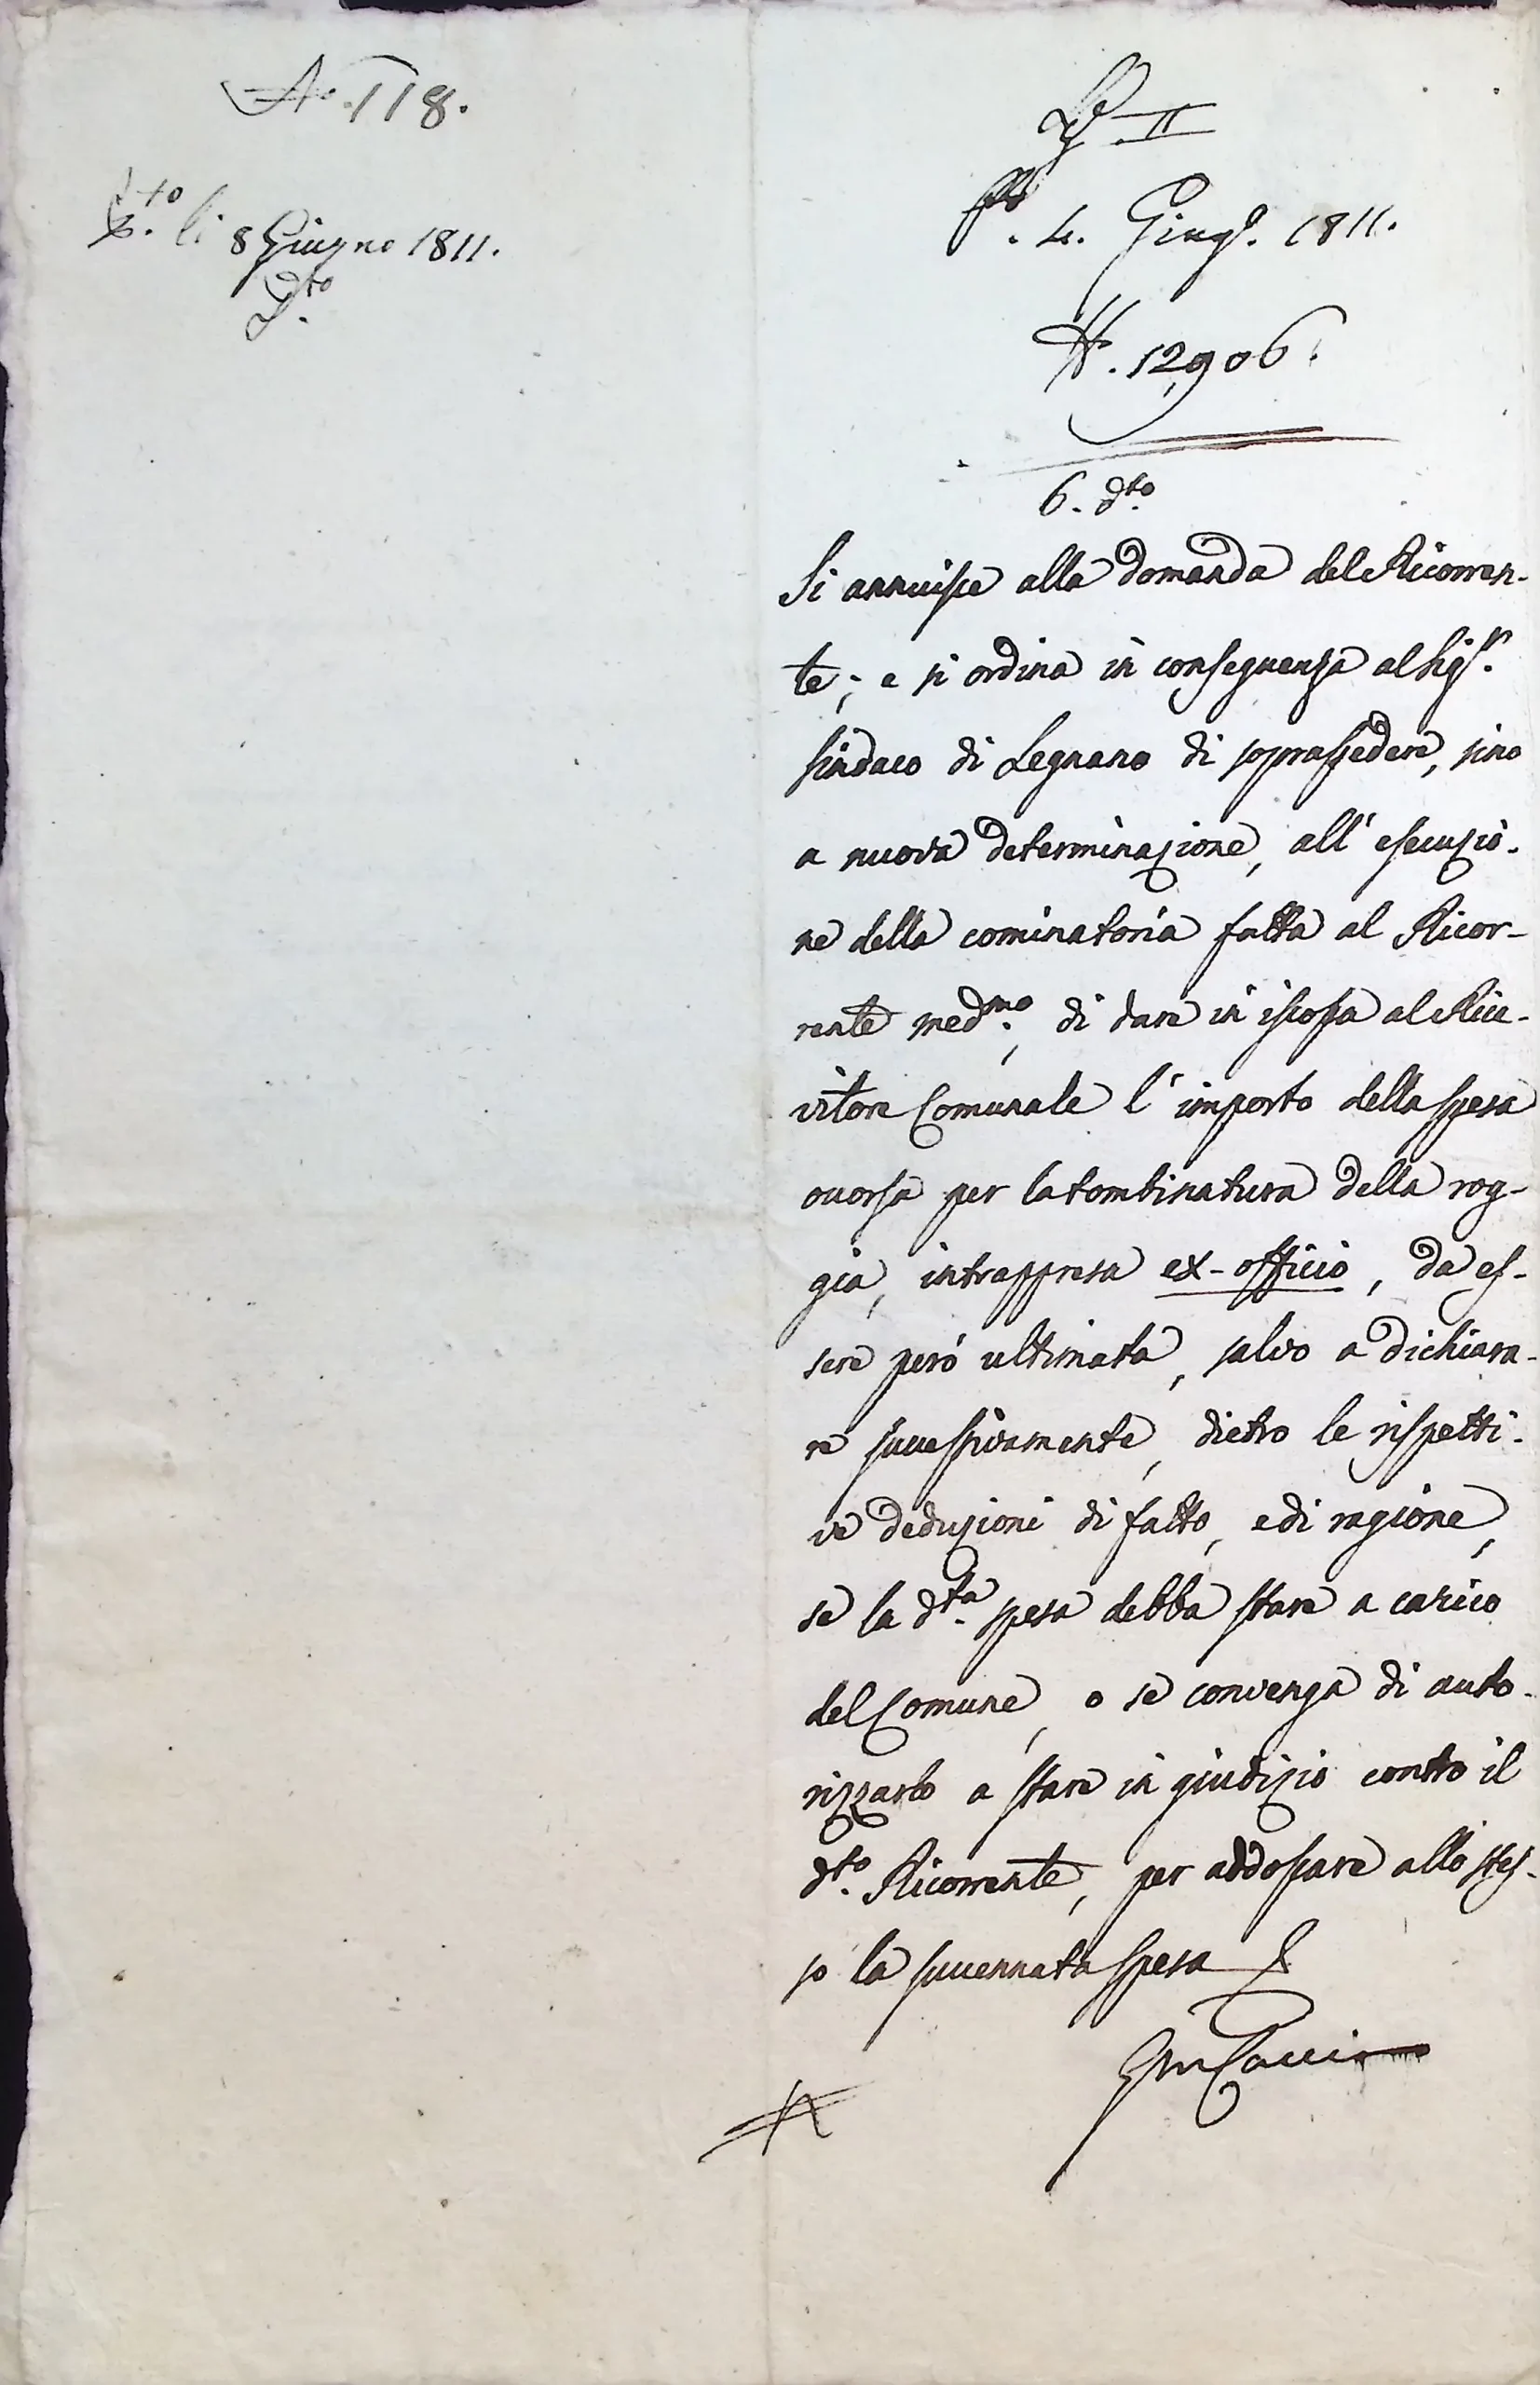 N.° 118.
P.to li 8 Giugno 1811.
D.to
II
P. 4. Giug.o 1811.
N.° 12906.
6. d.to
Si annuisce alla domanda del Ricorren-
te; e si ordina in conseguenza al Sig.r
Sindaco di Legnano di soprassedere, sino
a nuova determinazione, all' esecuzio-
ne della cominatoria fatta al Ricor-
rente med.mo, di dare in iscossa al Rice-
vitore Comunale l' importo della spesa
ovorsa per la tombinatura della rog-
gia, intrappresa ex-officio, da es-
sere però ultimata, salvo a dichiara-
re successivamente, dietro le rispetti-
ve deduzioni di fatto, e di ragione,
se la d.ta spesa debba stare a carico
del Comune, o se convenga di auto-
rizzarlo a stare in giudizio contro il
d.to Ricorrente, per addossare allo stes-
so la succennata spesa